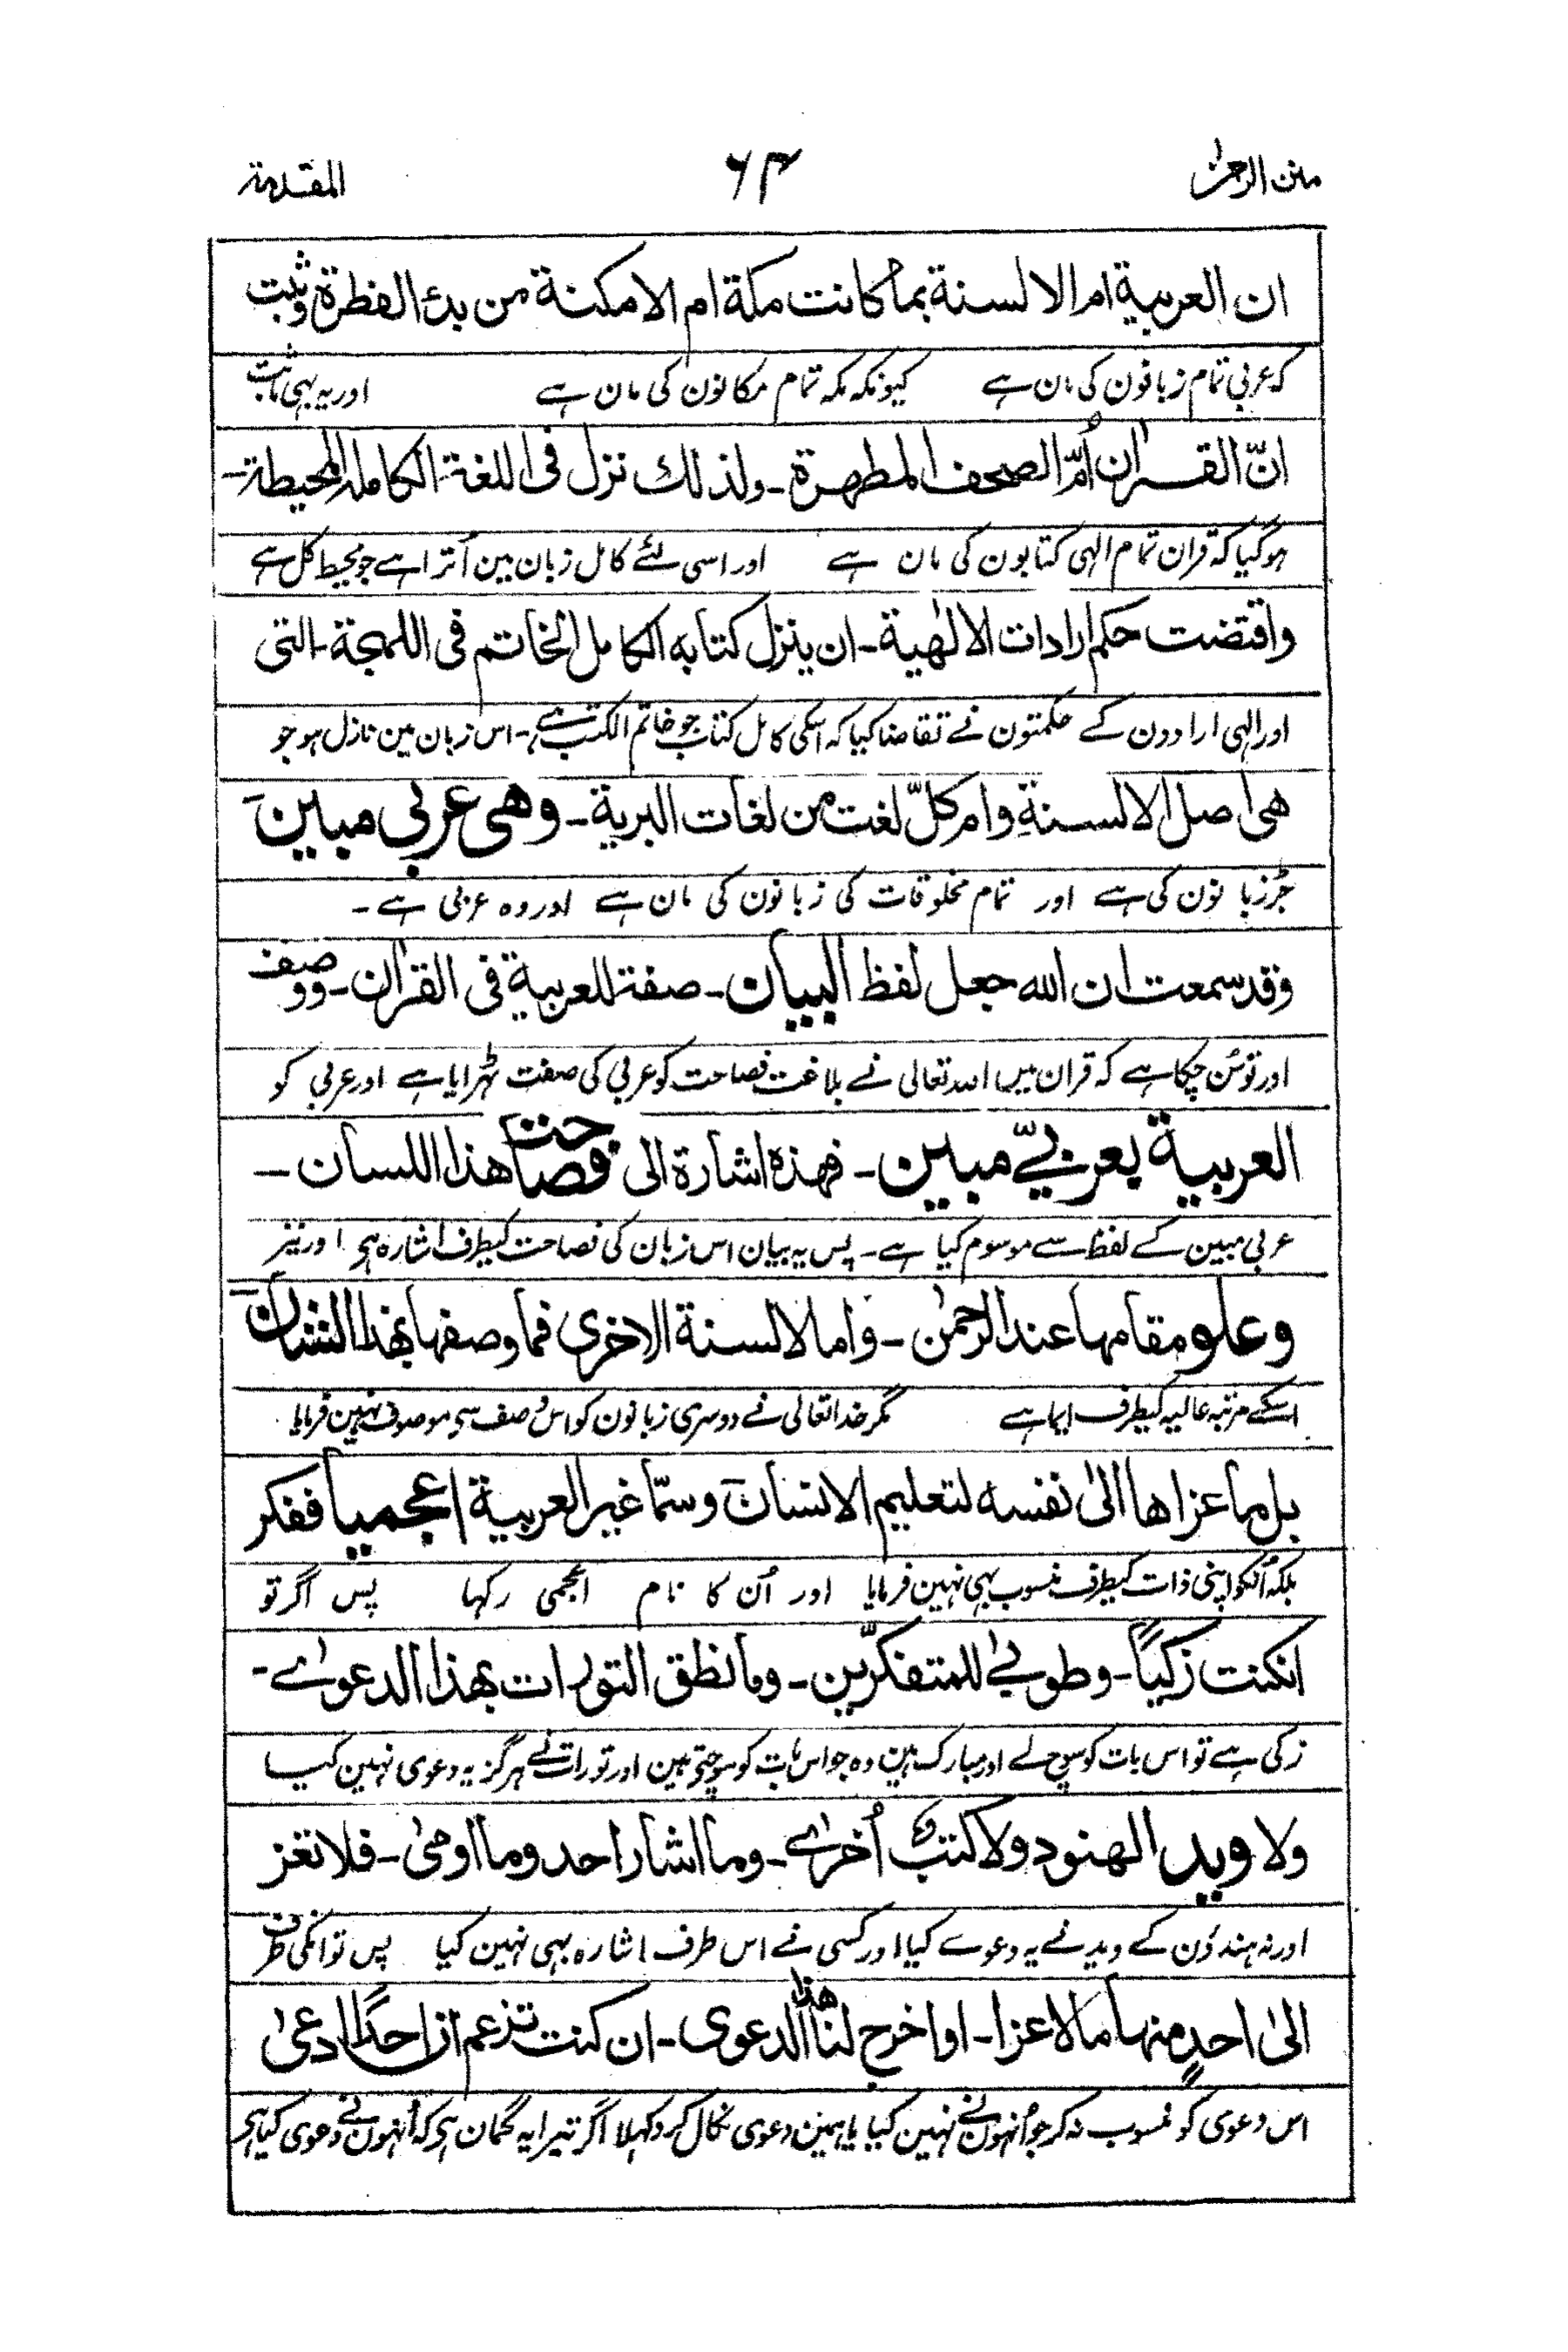 منن الرحمٰن ۶۴ المقدمۃ
ان العربية ام الالسنة بما كانت مكة ام الامكنة من بدء الفطرة وثبت
کہ عربی تمام زبانون کی مان ہے کیونکہ مکہ تمام مکانون کی مان ہے اور یہ بھی ثابت
انّ القران اُمّ الصحف المطهرة - ولذلك نزل فى اللغة الكاملة المحيطة -
ہوگیا کہ قران تمام الہی کتابون کی مان ہے اور اسی لئے کامل زبان مین اُترا ہے جو محیط کل ہے
واقتضت حكم ارادات الالٰهية - ان ينزل كتابه الكامل الخاتم فى اللهجة - التى
اور الہی ارادون کے حکمتون نے تقاضا کیا کہ اسکی کامل کتاب جو خاتم الکتب ہے - اس زبان مین نازل ہو جو
هى اصل الالسنةِ وام كلّ لغت من لغات البرية - وهى عربى مبين
جڑ زبانون کی ہے اور تمام مخلوقات کی زبانون کی مان ہے اور وہ عربی ہے -
وقد سمعت ان الله جعل لفظ البيان - صفة للعربية فى القراٰن - ووصف
اور تو سُن چکا ہے کہ قران میں اللہ تعالی نے بلاغت فصاحت کو عربی کی صفت ٹہرایا ہے اور عربی کو
العربية بعربيّ مبين - فهذه اشارة الى فصاحت هذا اللسان -
عربی مبین کے لفظ سے موسوم کیا ہے - پس یہ بیان اس زبان کی فصاحت کیطرف اشارہ ہے اور نیز
وعلو مقامها عند الرحمٰن - واما الالسنة الاخرى فما وصفها بهذا الشان
اسکے مرتبہ عالیہ کیطرف ایما ہے مگر خدا تعالی نے دوسری زبانون کو اس وصف سے موصوف نہین فرمایا
بل ما عزاها الىٰ نفسه لتعليم الانسان وسمّا غير العربية اعجمياً ففكر
بلکہ اُنکو اپنی ذات کیطرف منسوب بہی نہین فرمایا اور اُن کا نام اعجمی رکہا پس اگر تو
انكنت زكياً - وطوبىٰ للمتفكرّين - وما نطق التورات بهذا الدعوىٰ -
زکی ہے تو اس بات کو سوچ لے اور مبارک ہین وہ جو اس بات کو سوچتے ہین اور تورات نے ہرگز یہ دعوی نہین کیا
ولا ويد الهنود ولا كتب اُخرىٰ - وما اشار احد وما اومىٰ - فلا تعز
اور نہ ہندؤن کے وید نے یہ دعوے کیا اور کسی نے اس طرف اشارہ بہی نہین کیا پس تو انکی طرف
الىٰ احدٍ منها ما لا عزا - او اخرج لنا هذا الدعوى - ان كنت تزعم ان احدًا ادعىٰ
اس دعوی کو منسوب نہ کر جو اُنہون نے نہین کیا یا ہمین دعوی نکال کر دکہلا اگر تیرا یہ گمان ہے کہ اُنہون نے دعوی کیا ہے